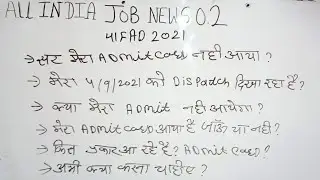 ALL INDIA JOB NEWS 0.2
41FAD 2021
→ सर मेरा ADmit Card नही आया ?
→ मेरा 4/9/2021 को Dispadch दिखा रहा है ?
→ क्या मेरा ADmit नही आयेगा ?
→ मेरा ADmit CaRD आया है जाँऊ या नही ?
→ किस प्रकार आ रहे है ? ADmit Card ?
→ अभी क्या करना चाहिए ?